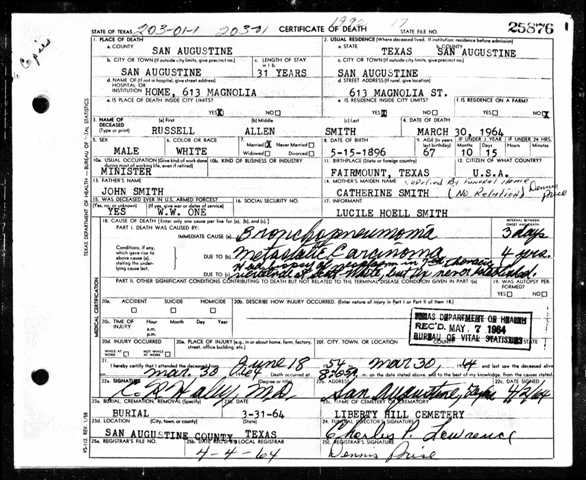 203-01-1 203-01
CERTIFICATE OF DEATH
STATE OF TEXAS
STATE FILE NO.
25876
1. PLACE OF DEATH
2. USUAL RESIDENCE (Where deceased lived. If institution: residence before admission)
a. COUNTY
SAN AUGUSTINE
a. STATE
TEXAS
b. COUNTY
SAN AUGUSTINE
b. CITY OR TOWN (If outside city limits, give precinct no.)
c. LENGTH OF STAY
c. CITY OR TOWN (If outside city limits, give precinct no.)
SAN AUGUSTINE
31 YEARS
SAN AUGUSTINE
d. NAME OF (If not in hospital, give street address)
HOSPITAL OR
INSTITUTION
HOME, 613 MAGNOLIA
d. STREET ADDRESS (If rural, give location)
613 MAGNOLIA ST.
e. IS PLACE OF DEATH INSIDE CITY LIMITS?
YES NO
e. IS RESIDENCE INSIDE CITY LIMITS?
YES NO
f. IS RESIDENCE ON A FARM?
YES NO
3. NAME OF DECEASED
(Type or print)
(a) First
(b) Middle
(c) Last
4. DATE OF DEATH
RUSSELL ALLEN SMITH MARCH 30, 1964
5. SEX
6. COLOR OR RACE
7. Married Never Married
Widowed Divorced
8. DATE OF BIRTH
9. AGE (In years
IF UNDER 1 YEAR
IF UNDER 24 HRS
MALE WHITE 5-15-1896 67 10 15
10a. USUAL OCCUPATION (Give kind of work
10b. KIND OF BUSINESS OR INDUSTRY
11. BIRTHPLACE (State or foreign country)
12. CITIZEN OF WHAT COUNTRY?
MINISTER FAIRMOUNT, TEXAS U.S.A.
13. FATHER'S NAME
14. MOTHER'S MAIDEN NAME
JOHN SMITH CATHERINE SMITH (No Relation) Dennis Price
15. WAS DECEASED EVER IN U.S. ARMED FORCES?
16. SOCIAL SECURITY NO.
17. INFORMANT
YES W.W. ONE LUCILE HOELL SMITH
18. CAUSE OF DEATH [Enter only one cause per line for (a), (b), and (c).]
PART I. DEATH WAS CAUSED BY:
IMMEDIATE CAUSE (a) Bronchopneumonia 3 days
Conditions, if any,
which gave rise to
above cause (a),
stating the under-
lying cause last.
DUE TO (b) Metastatic Carcinoma 4 yrs.
DUE TO (c)
PART II. OTHER SIGNIFICANT CONDITIONS CONTRIBUTING TO DEATH BUT NOT RELATED TO THE TERMINAL DISEASE CONDITION GIVEN IN PART I(a)
19. WAS AUTOPSY PERFORMED?
YES NO
20a. ACCIDENT SUICIDE HOMICIDE
20b. DESCRIBE HOW INJURY OCCURRED. (Enter nature of injury in Part I or Part II of item 18.)
20c. TIME OF INJURY
Hour Month Day Year
a.m.
p.m.
TEXAS DEPARTMENT OF HEALTH
REC'D MAY 7 1964
BUREAU OF VITAL STATISTICS
20d. INJURY OCCURRED
WHILE AT WORK NOT WHILE AT WORK
20e. PLACE OF INJURY (e.g., in or about home, farm, factory, street, office building, etc.)
20f. CITY, TOWN, OR LOCATION
21. I hereby certify that I attended the deceased from June 18 54 Mar 30 and last saw the deceased alive
on Mar. 30 Death occurred at m. on the date stated above, and to the best of my knowledge, from the causes stated.
22a. SIGNATURE
(Degree or title)
22b. ADDRESS
22c. DATE SIGNED
Haley M.D. San Augustine, Texas 4/2/64
23a. BURIAL, CREMATION, REMOVAL (Specify)
23b. DATE
23c. NAME OF CEMETERY OR CREMATORY
BURIAL 3-31-64 LIBERTY HILL CEMETERY
23d. LOCATION (City, town, or county) (State)
24. FUNERAL DIRECTOR'S SIGNATURE
SAN AUGUSTINE COUNTY TEXAS Charles P. Lawrence
25a. REGISTRAR'S FILE NO.
25b. DATE REC'D BY LOCAL REGISTRAR
25c. REGISTRAR'S SIGNATURE
4-4-64 Dennis Price
TEXAS DEPARTMENT OF HEALTH - BUREAU OF VITAL STATISTICS
MEDICAL CERTIFICATION